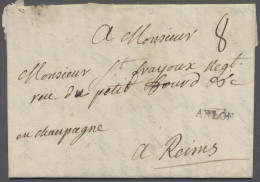 A Monsieur 8
Monsieur frajoux Negt.
rue du petit Bourd &c
ARLON
en champagne
A Reims